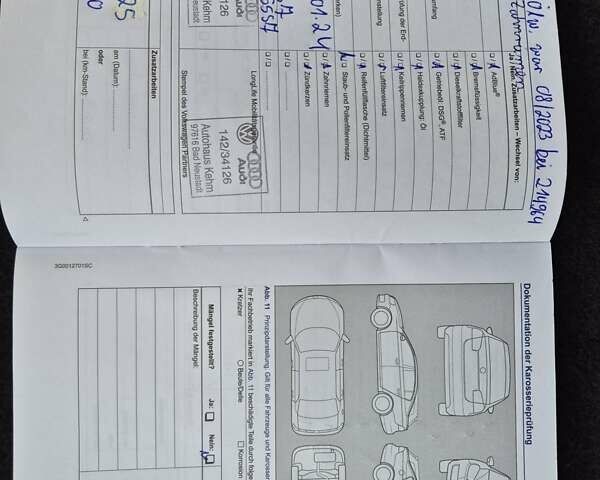 Ö.W. war 08/2023 bei 214964
Zahnriemen
Ja / Nein: Zusatzarbeiten – Wechsel von:
AdBlue®
Bremsflüssigkeit
Dieselkraftstofffilter
Getriebeöl, DSG®, ATF
Haldexkupplung: Öl
Keilrippenriemen
Luftfiltereinsatz
Reifenfüllflasche (Dichtmittel)
Staub- und Pollenfiltereinsatz
Zahnriemen
Zündkerzen
LongLife Mobilitätsgarantie
Audi
142/34126
Autohaus Kehm
97616 Bad Neustadt
Stempel des Volkswagen Partners
Zusatzarbeiten
am (Datum):
oder
bei (km-Stand):
01.24
25
0
4
3G0012701SC
Dokumentation der Karosserieprüfung
Abb. 11 Prinzipdarstellung. Gilt für alle Fahrzeuge und Karosser
Ihr Fachbetrieb markiert in Abb. 11 beschädigte Teile durch folge
Kratzer
Beule/Delle
Korrosion
Mängel festgestellt?
Ja:
Nein:
Beschreibung der Mängel: